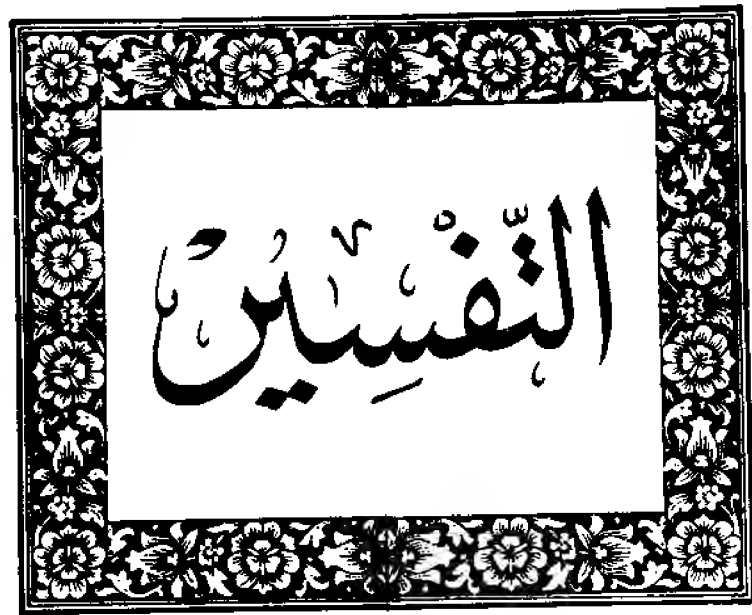 التَّفْسِير